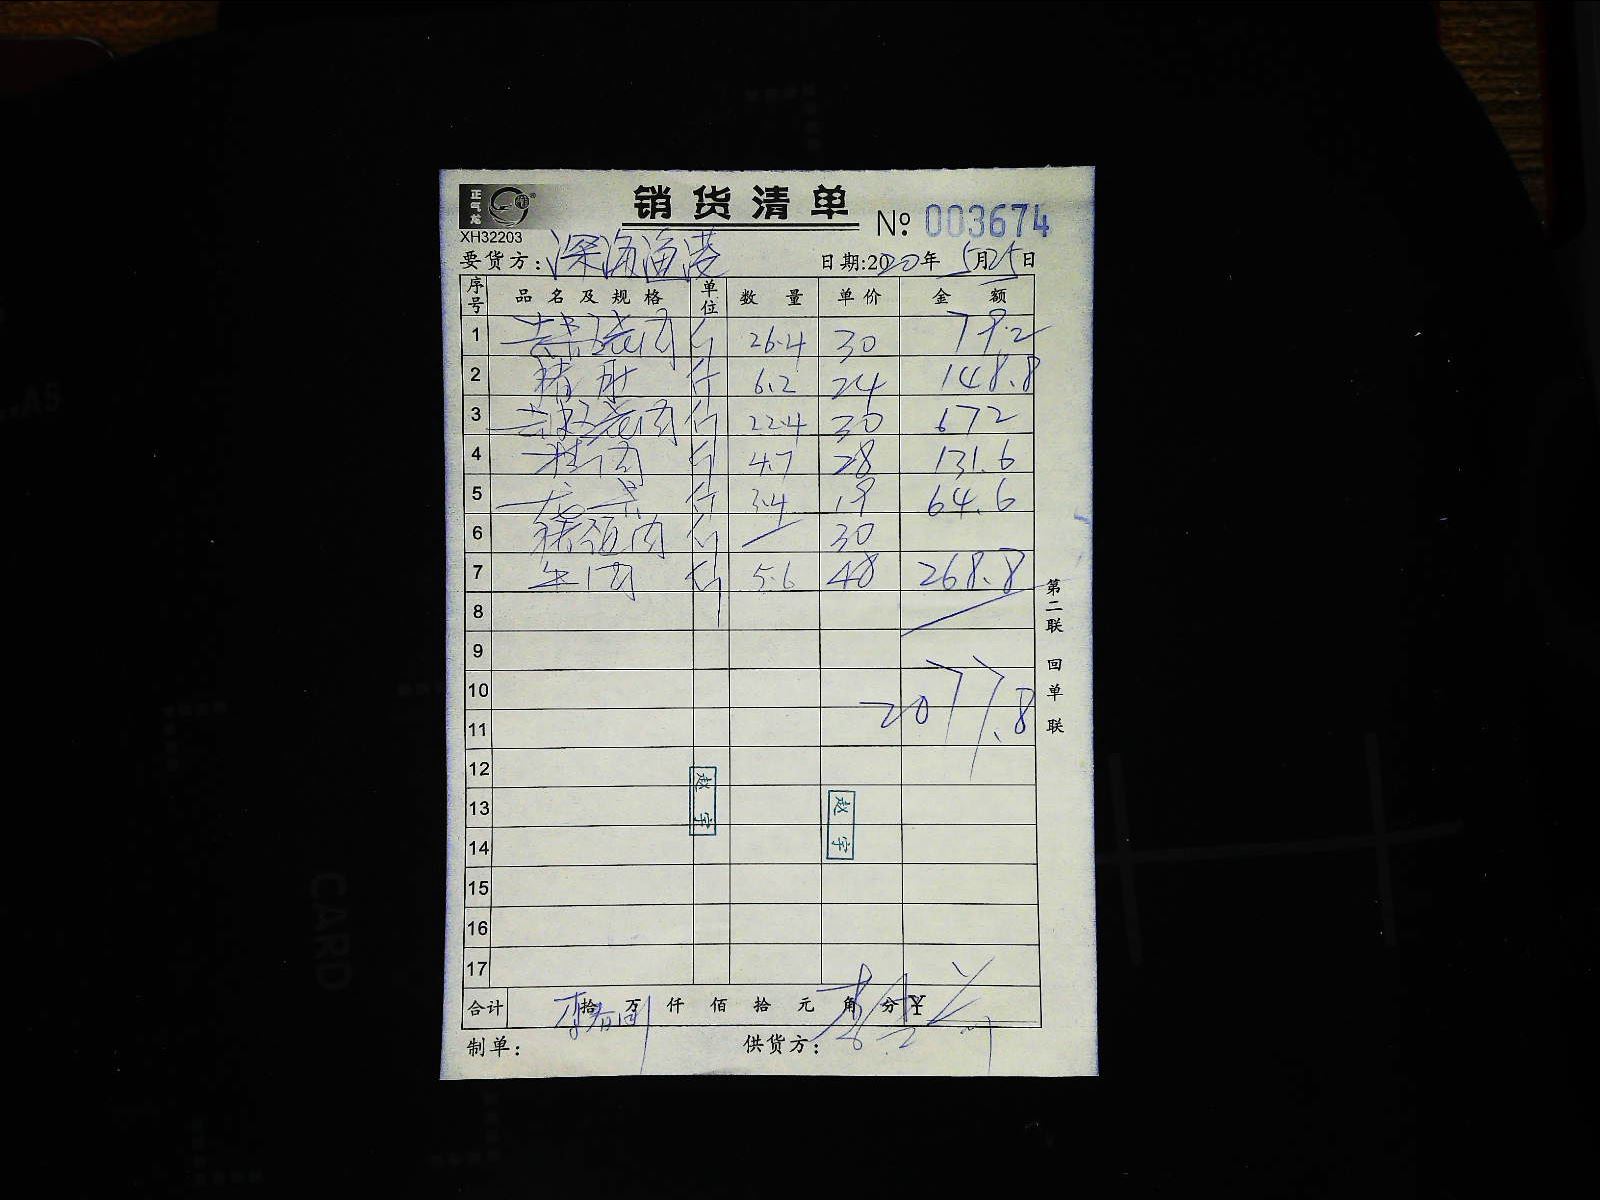 正气龙
销货清单
XH32203
№ 003674
要货方：深海渔港 日期:2020年 5月25日
序号 品名及规格 单位 数量 单价 金额
1 斤 26.4 30 792
2 猪肝 斤 6.2 24 148.8
3 斤 22.4 30 672
4 肉 斤 4.7 28 131.6
5 斤 3.4 19 64.6
6 猪颈肉 斤 30
7 牛肉 斤 5.6 48 268.8
8
9
10
2077.8
11
12
13
14
15
16
17
赵宇
赵宇
合计 拾 万 仟 佰 拾 元 角 分 ¥
李春雨
制单： 供货方：
第二联 回单联
CARD